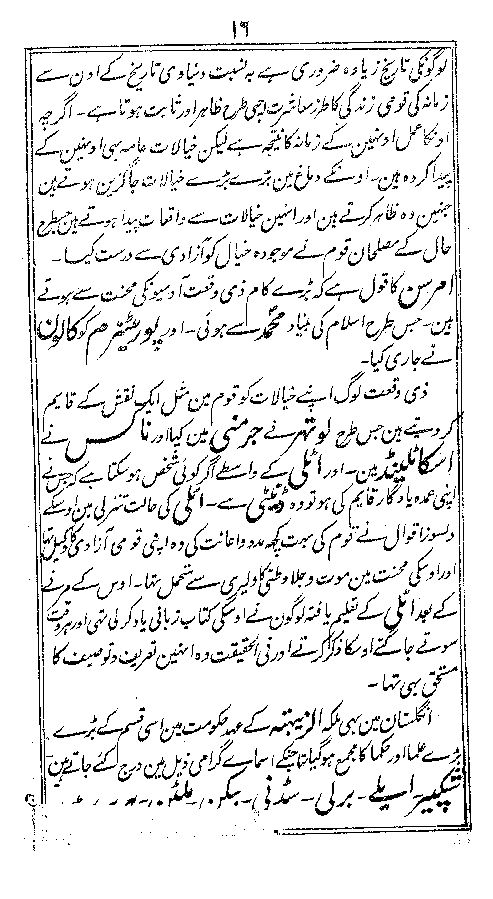 ۱۶
لوگونکی تاریخ زیادہ ضروری ہے بہ نسبت دنیاوی تاریخ کے اون سے
زمانہ کی قومی زندگی کا طرز معاشرت اچھی طرح ظاہر اور ثابت ہوتا ہے۔ اگرچہ
اونکا عمل اونہین کے زمانہ کا نتیجہ ہے لیکن خیالات عامہ بہی اونہین کے
پیدا کردہ ہین۔ اونکے دماغ مین بڑے بڑے خیالات جاگزین ہوتے ہین
جنہین وہ ظاہر کرتے ہین اور انہین خیالات سے واقعات پیدا ہوتے ہین جسطرح
حال کے مصلحان قوم نے موجودہ خیال کو آزادی سے درست کیا۔
امرسن کا قول ہے کہ بڑے کام ذی وقعت آدمیونکی محنت سے ہوتے
ہین۔ جس طرح اسلام کی بنیاد محمدؐ سے ہوئی۔ اور پورٹینزم کو کالون
نے جاری کیا۔
ذی وقعت لوگ اپنے خیالات کو قوم مین مثل ایک نقش کے قایم
کر دیتے ہین جس طرح لوتھر نے جرمنی مین کیا اور ناکس نے
اسکاٹلینڈ مین۔ اور اٹلی کے واسطے اگر کوئی شخص ہوسکتا ہے کہ جس نے
اپنی عمدہ یادگار قایم کی ہو تو وہ ڈینٹی ہے۔ اٹلی کی حالت تنزلی مین اوسکے
دلسوز اقوال نے قوم کی بہت کچھ مدد و اعانت کی وہ اپنی قومی آزادی کا وکیل تہا
اور اوسکی محنت مین موت و جلا وطنی کا دلیری سے متحمل تہا۔ اوس کے مرنے
کے بعد اٹلی کے تعلیم یافتہ لوگون نے اوسکی کتاب زبانی یاد کرلی تہی اور ہر وقت
سوتے جاگتے اوسکا ذکر کرتے اور فی الحقیقت وہ انہین تعریف و توصیف کا
مستحق بہی تہا۔
انگلستان مین بہی ملکہ الزیبتھ کے عہد حکومت مین اسی قسم کے بڑے
بڑے علما اور حکما کا مجمع ہوگیا تہا جنکے اسماے گرامی ذیل مین درج کئے جاتے ہین
شکسپیر۔ ریلے۔ برلی۔ سڈنی۔ بیکن۔ ملٹن۔